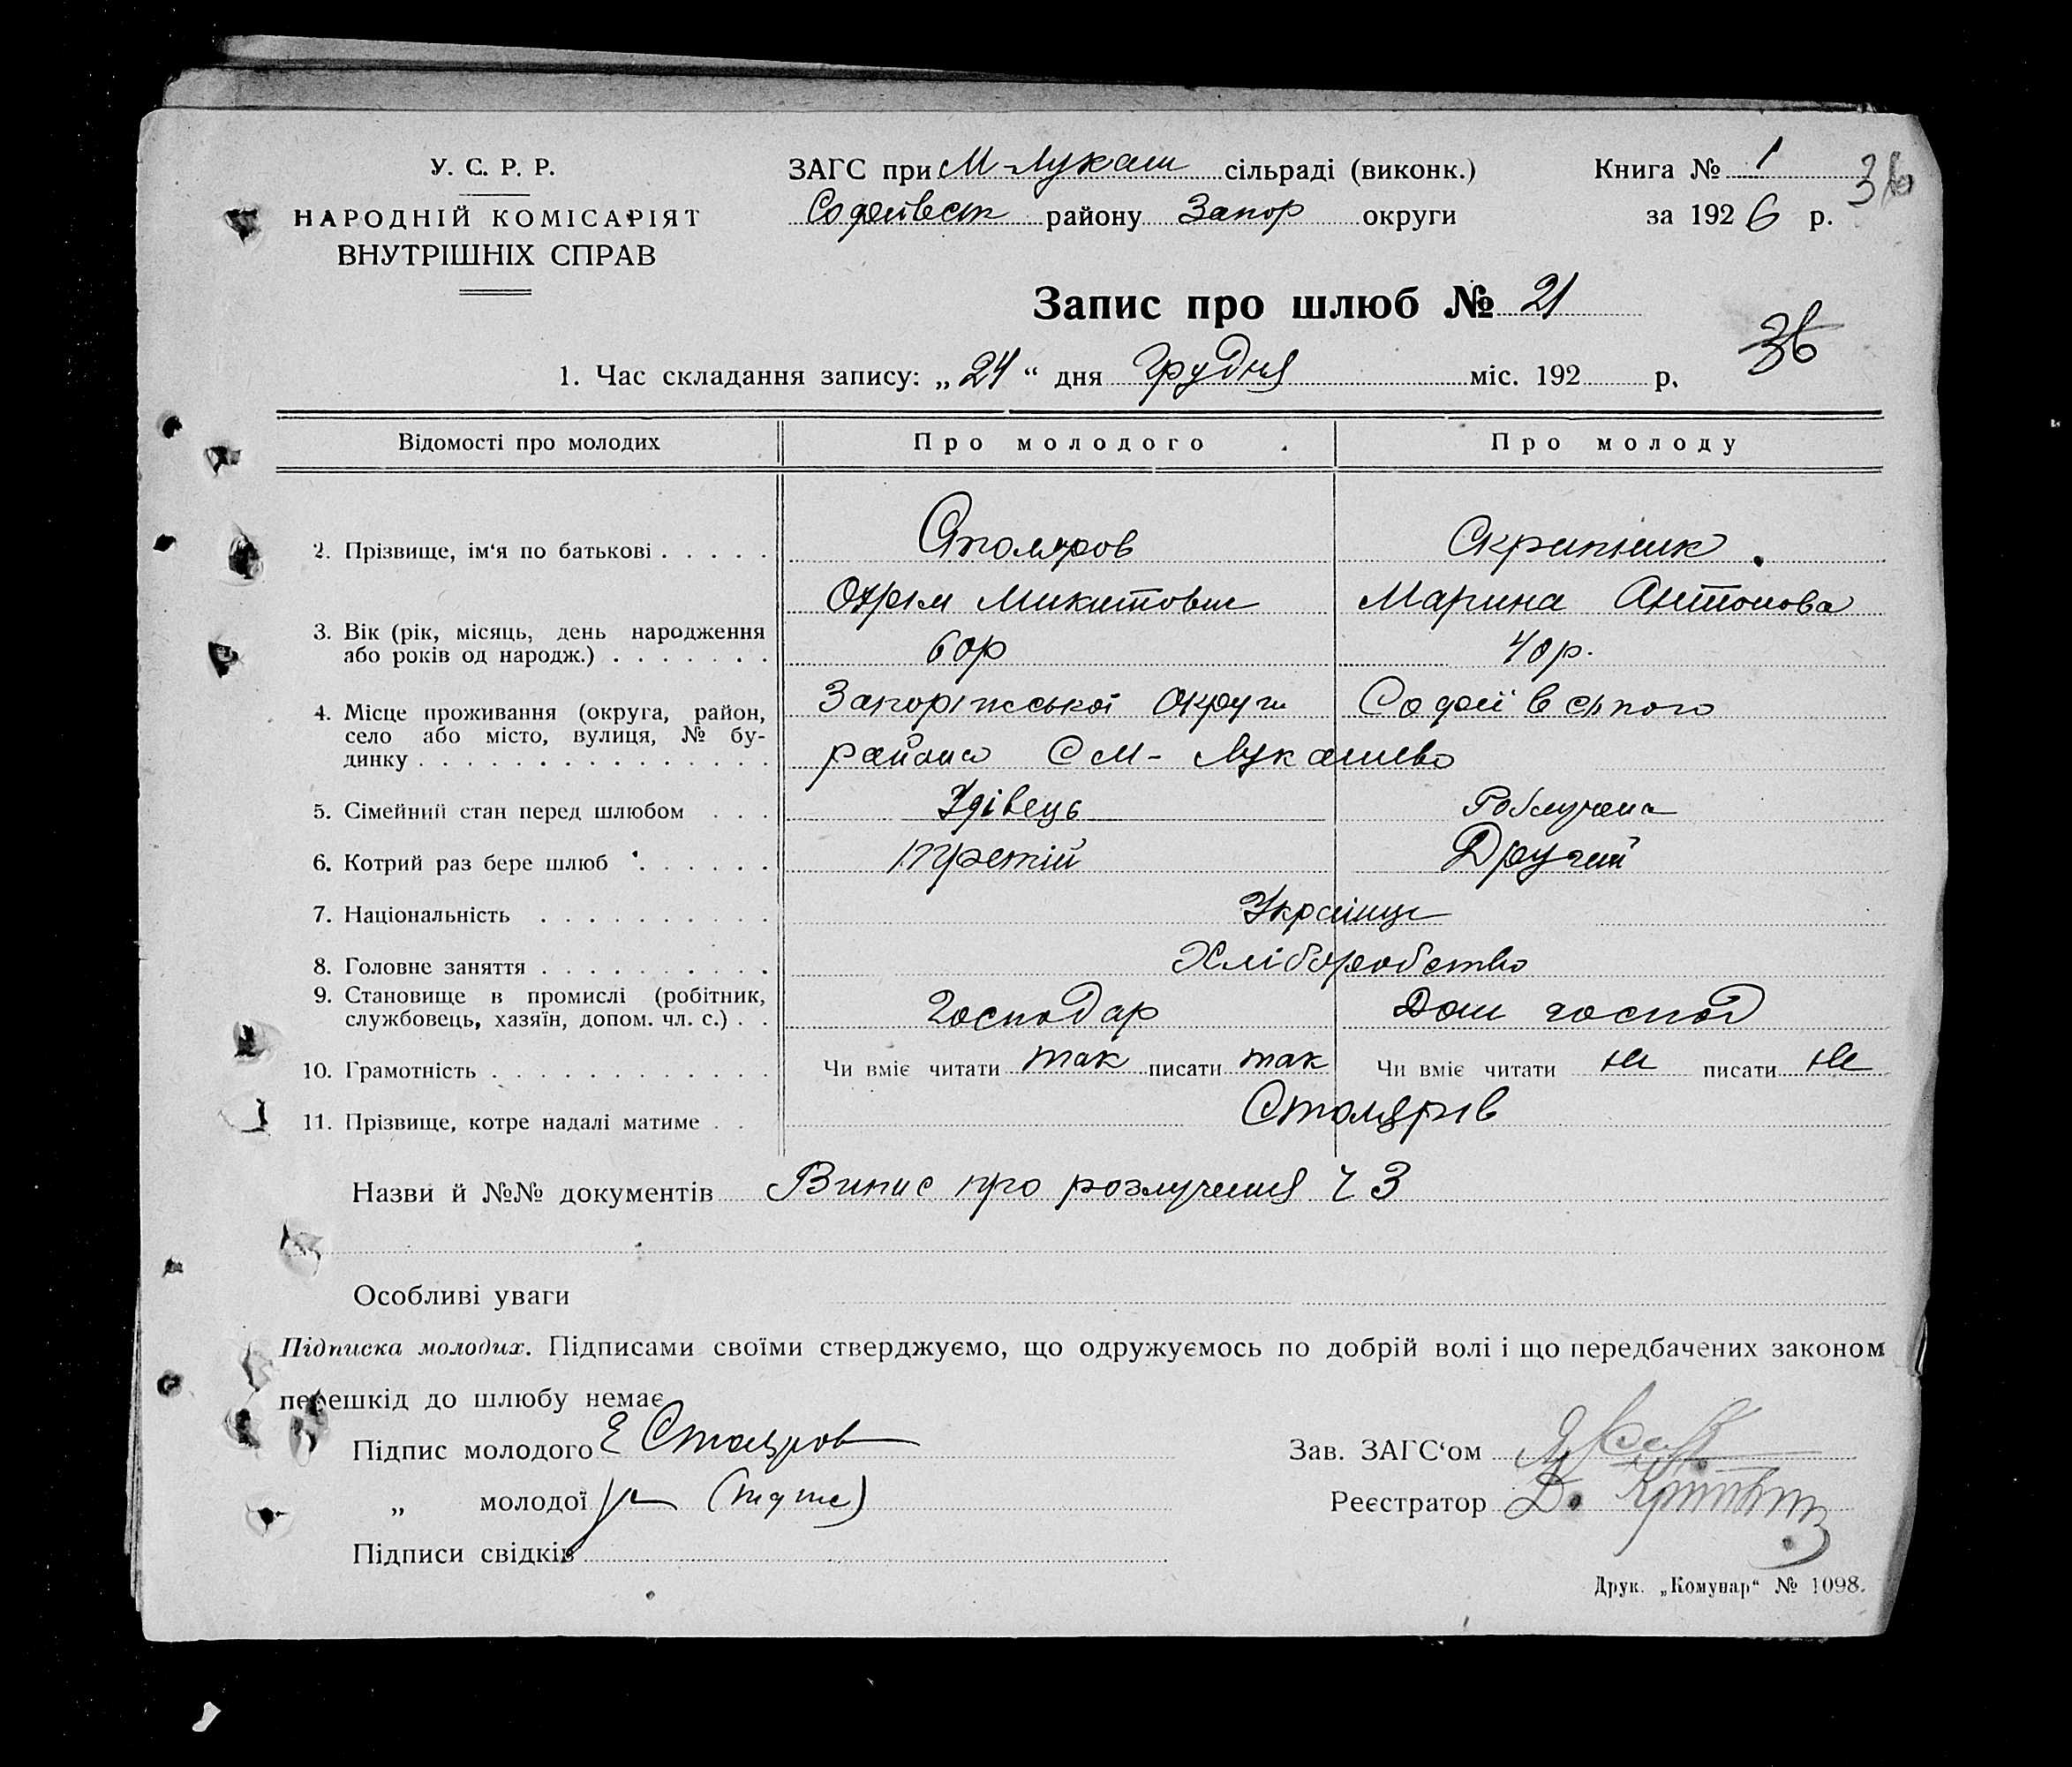 У. С. Р. Р.
НАРОДНІЙ КОМІСАРІЯТ
ВНУТРІШНІХ СПРАВ
ЗАГС при М-Лукаш сільраді (виконк.)
Софиївськ району Запор округи
Книга № 1
за 1926 р.
36
Запис про шлюб № 21
36
1. Час складання запису: „24“ дня Грудня міс. 192 р.
Відомості про молодих Про молодого Про молоду
2. Прізвище, ім‘я по батькові Столяров Скрипник
Охрім Микитович Марина Антонова
3. Вік (рік, місяць, день народження
або років од народж.) 60р 40р.
4. Місце проживання (округа, район, Запоріжської округи Софиївського
село або місто, вулиця, № бу-
динку района С М-Лукашево
5. Сімейний стан перед шлюбом Удівець Розлучена
6. Котрий раз бере шлюб третій Другий
7. Національність Українці
8. Головне заняття Хліборобство
9. Становище в промислі (робітник,
службовець, хазяїн, допом. чл. с.) Господар Дом господ
10. Грамотність Чи вміє читати так писати так Чи вміє читати ни писати ни
11. Прізвище, котре надалі матиме Столярів
Назви й №№ документів Випис про розлучення ч 3
Особливі уваги
Підписка молодих. Підписами своїми стверджуємо, що одружуємось по добрій волі і що передбачених законом
перешкід до шлюбу немає
Підпис молодого Е Столяров
„ молодої
Підписи свідків
Зав. ЗАГС‘ом
Реєстратор
Друк. „Комунар“ № 1098.